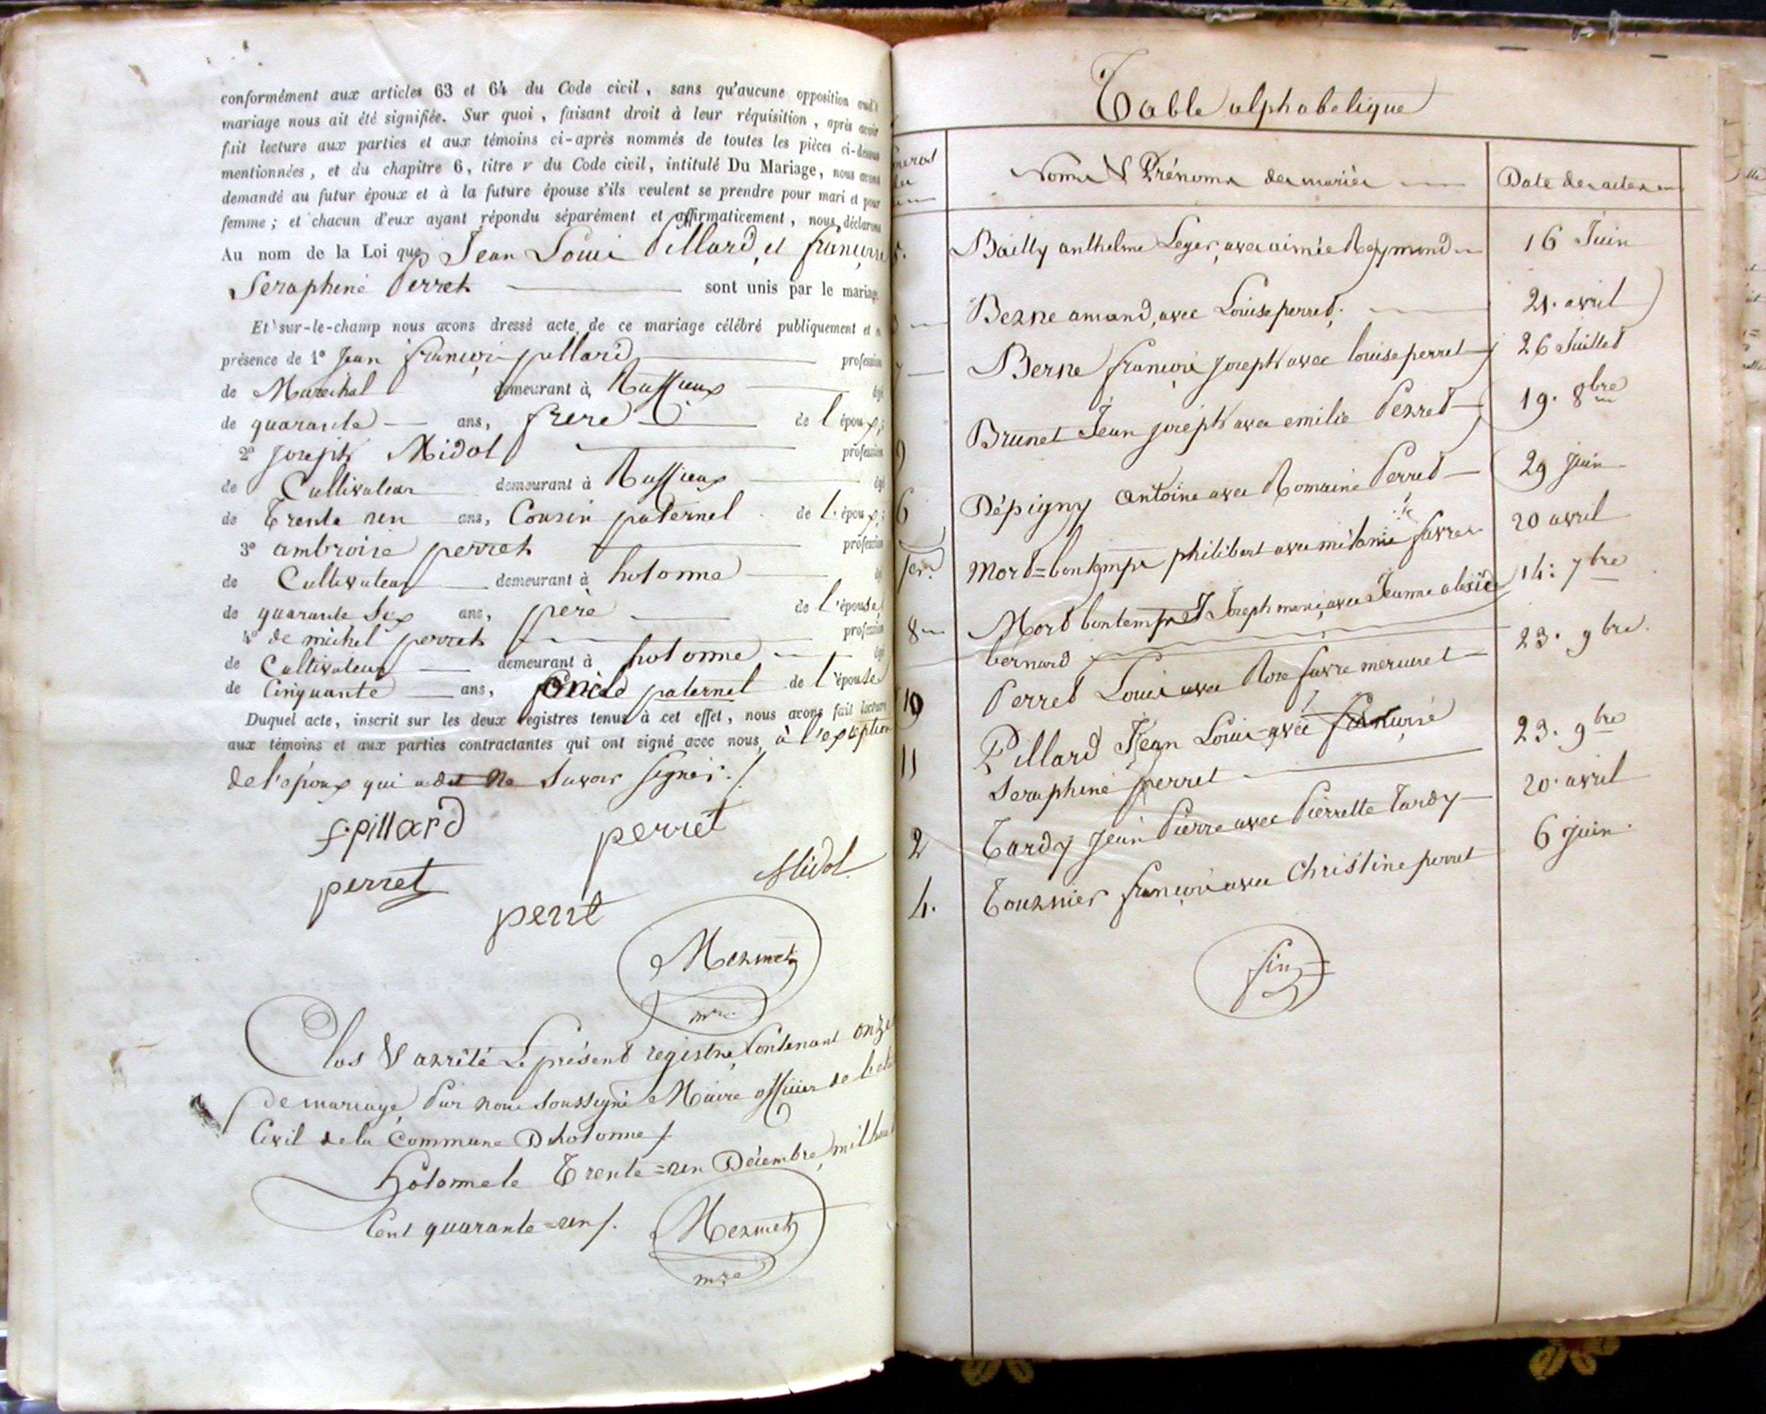 conformément aux articles 63 et 64 du Code civil, sans qu'aucune opposition
mariage nous ait été signifiée. Sur quoi, faisant droit à leur réquisition, après avoir
fait lecture aux parties et aux témoins ci-après nommés de toutes les pièces ci-dessus
mentionnées, et du chapitre 6, titre v du Code civil, intitulé Du Mariage, nous avons
demandé au futur époux et à la future épouse s'ils veulent se prendre pour mari et pour
femme; et chacun d'eux ayant répondu séparément et affirmativement, nous déclarons
Au nom de la Loi que Jean Louis Pillard, et françoise
Seraphine Perret sont unis par le mariage
Et sur-le-champ nous avons dressé acte de ce mariage célébré publiquement et
présence de 1° Jean françois pillard profession
de Maréchal demeurant à Ruffieux
de quarante ans, frere de l'époux;
2° joseph Midol profession
de Cultivateur demeurant à Ruffieux
de Trente un ans, Cousin paternel de l'époux;
3° ambroise perret profession
de Cultivateur demeurant à hotonne
de quarante Six ans, père de l'épouse
4° de michel perret profession
de Cultivateur demeurant à hotonne
de Cinquante ans, oncle paternel de l'épouse
Duquel acte, inscrit sur les deux registres tenus à cet effet, nous avons fait lecture
aux témoins et aux parties contractantes qui ont signé avec nous, à l'exception
de l'époux qui a dit ne Savoir Signer./
f. pillard
perret
perret
Midol
perret
Mermet
mre
Clos & arrêté Le présent registre, Contenant onze
de mariage, Par nous soussigné Maire officier de l'etat
Civil de la Commune D'hotonne /.
hotonne le Trente=un Décembre, mil huit
Cent quarante=un /.
Mermet
mre
Table alphabetique
Noms & Prénoms des mariés
Date des actes
5. Bailly anthelme Leger, avec aimée Reymond 16 Juin
Berne amand, avec Louise perret, 21. avril
7 Berne françois joseph avec louise perret 26 Juillet
9 Brunet Jean joseph avec emilie Perret 19. 8bre
6 Dépigny antoine avec Romaine Perret 29 juin
1er. Mort=bontemps philibert avec mélanie favre 20 avril
8 Mort bontemps Joseph mené, avec Jeanne alexie 14. 7bre
bernard
10 Perret Louis avec Rose favre mercuret 23. 9bre.
11 Pillard Jean Louis avec françoise 23. 9bre
Seraphine perret
2 Tardy Jean Pierre avec Pierrette Tardy 20. avril
4. Tournier françois avec Christine perret 6 Juin.
fin